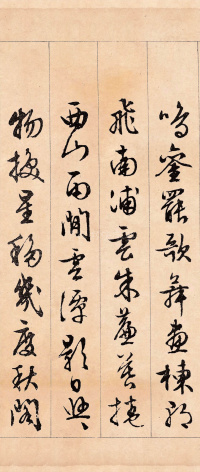 鳴鑾罷歌舞畫棟朝
飛南浦雲朱簾暮捲
西山雨閒雲潭影日悠々
物換星移幾度秋閣